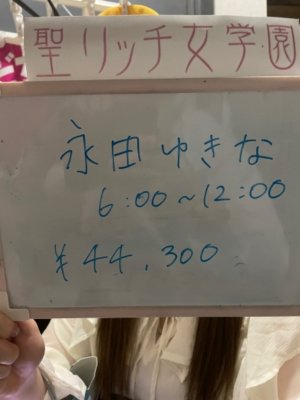 聖リッチ女学園
永田ゆきな
6:00~12:00
¥44,300